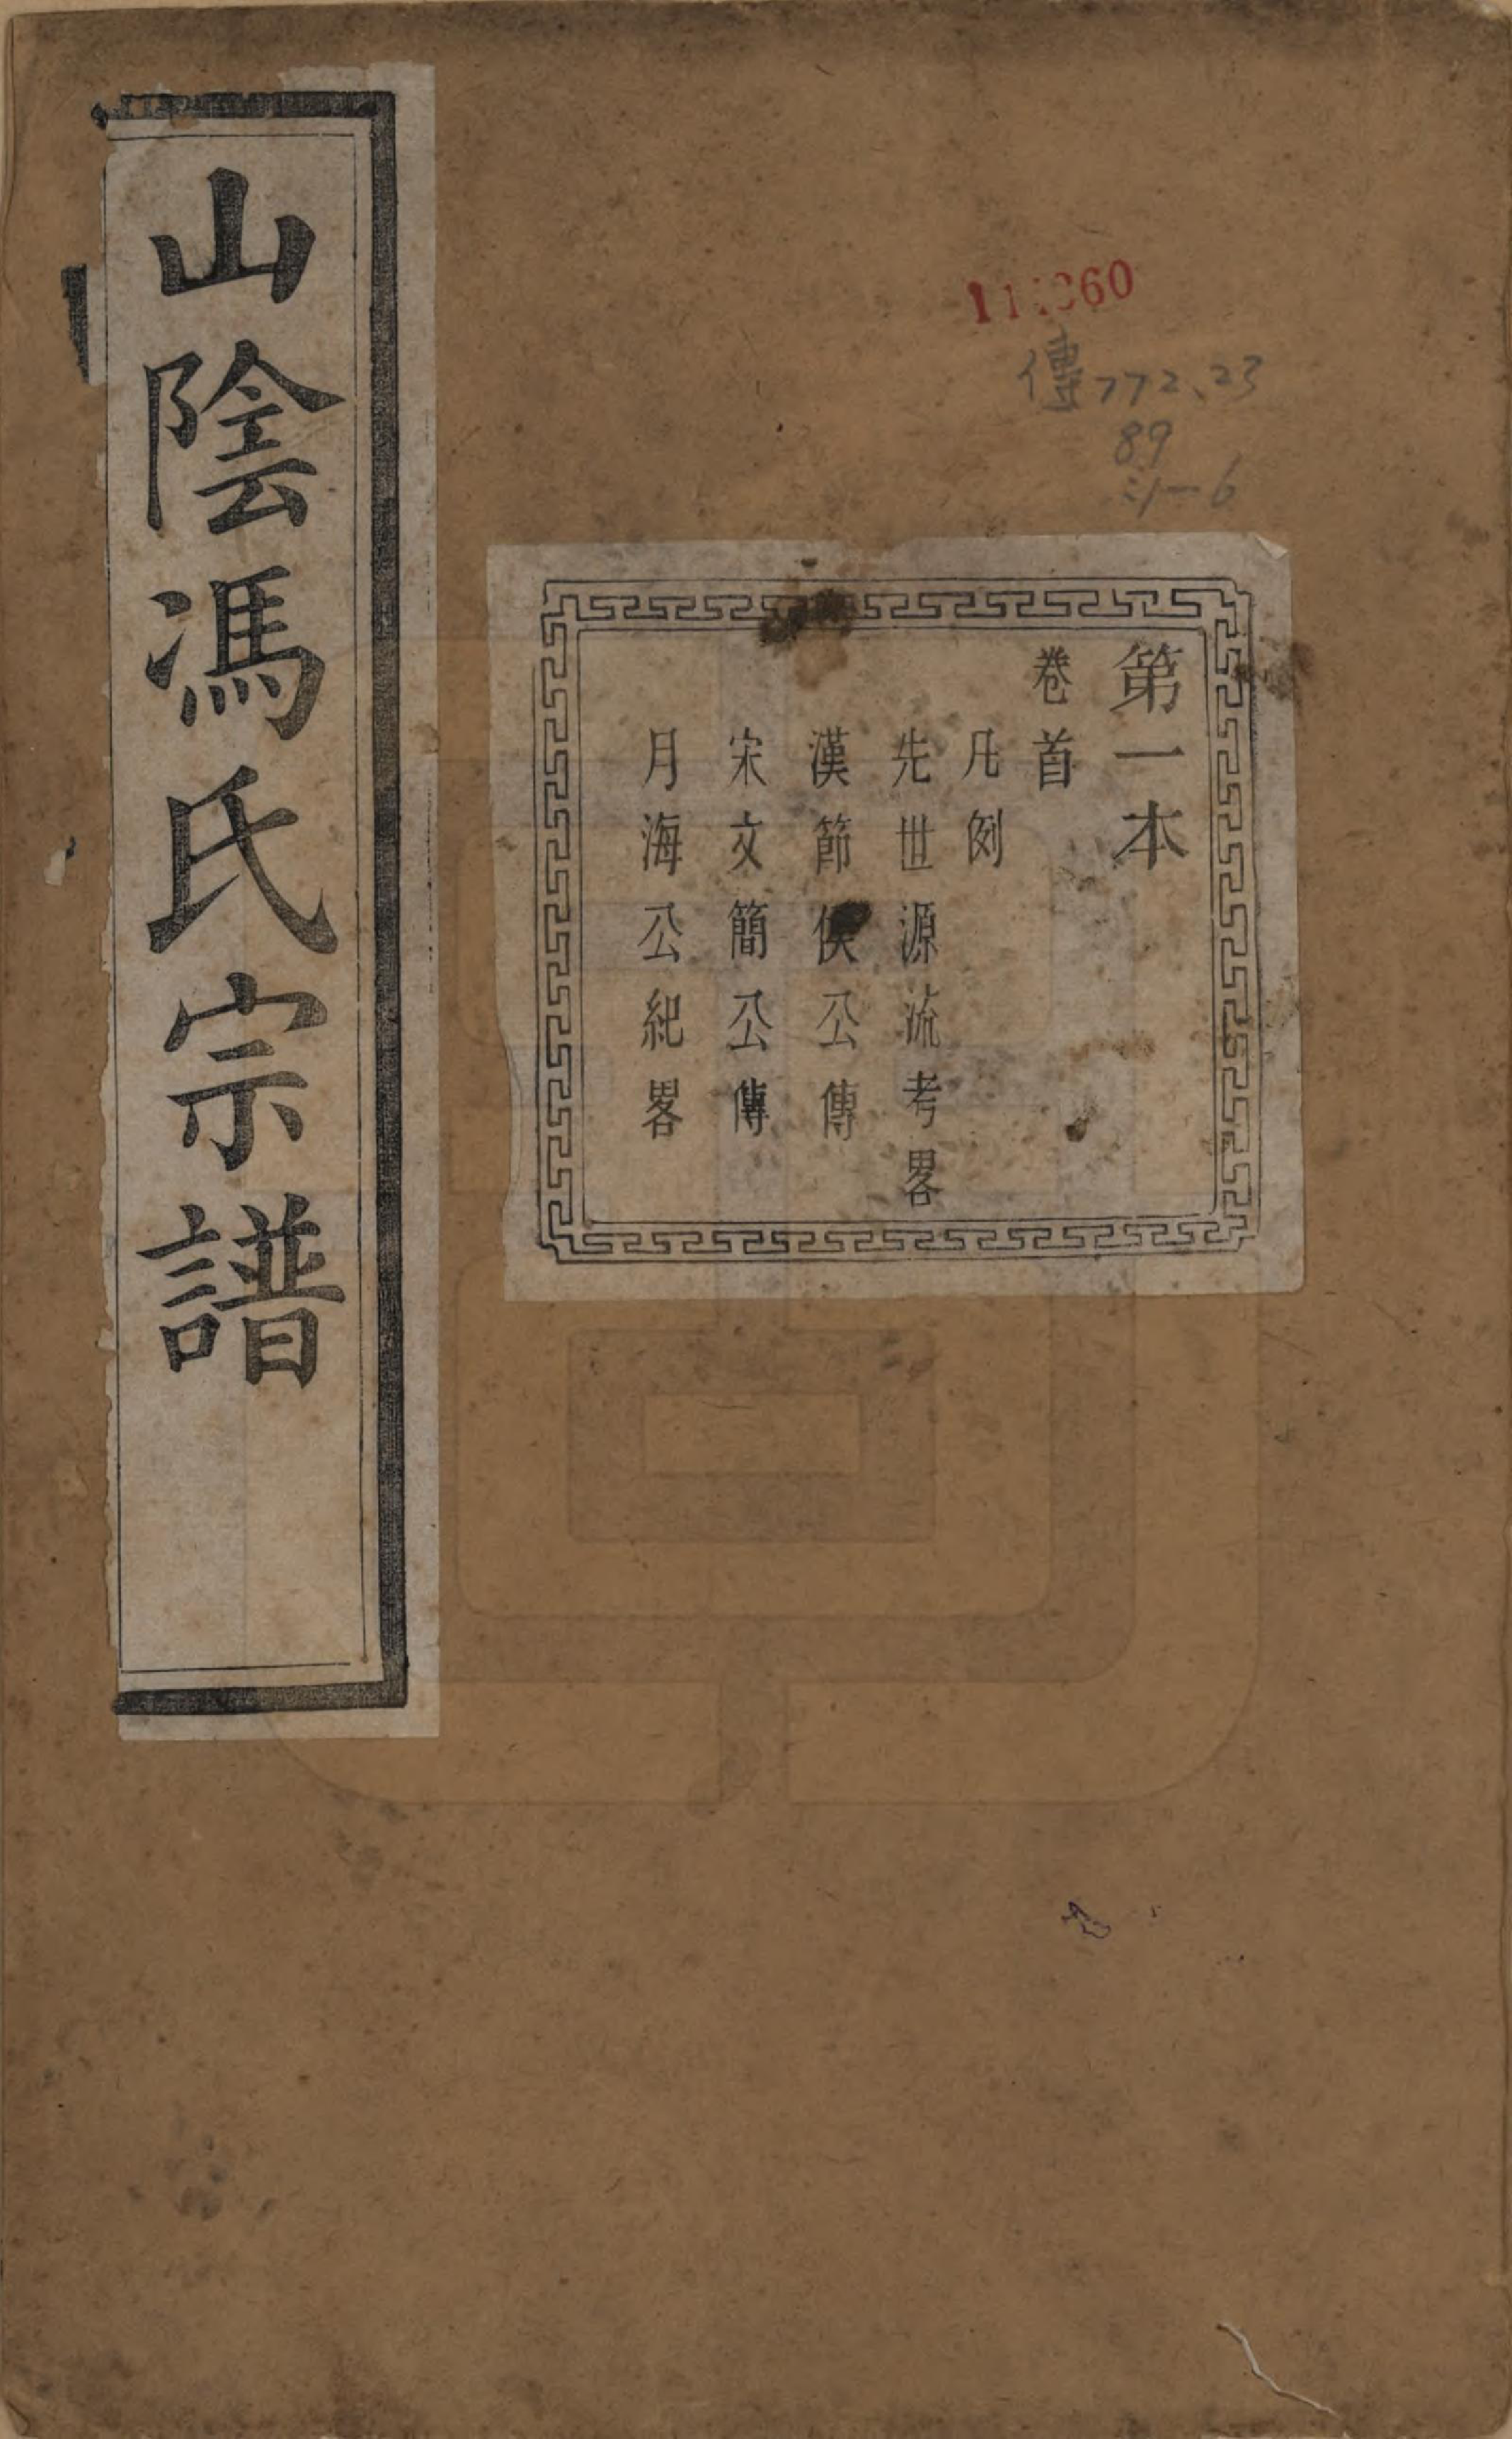 山陰馮氏宗譜
傳772.23
89
:1-6
第一本
卷首
凡例
先世源流考畧
漢節侯公傳
宋文簡公傳
月海公紀畧